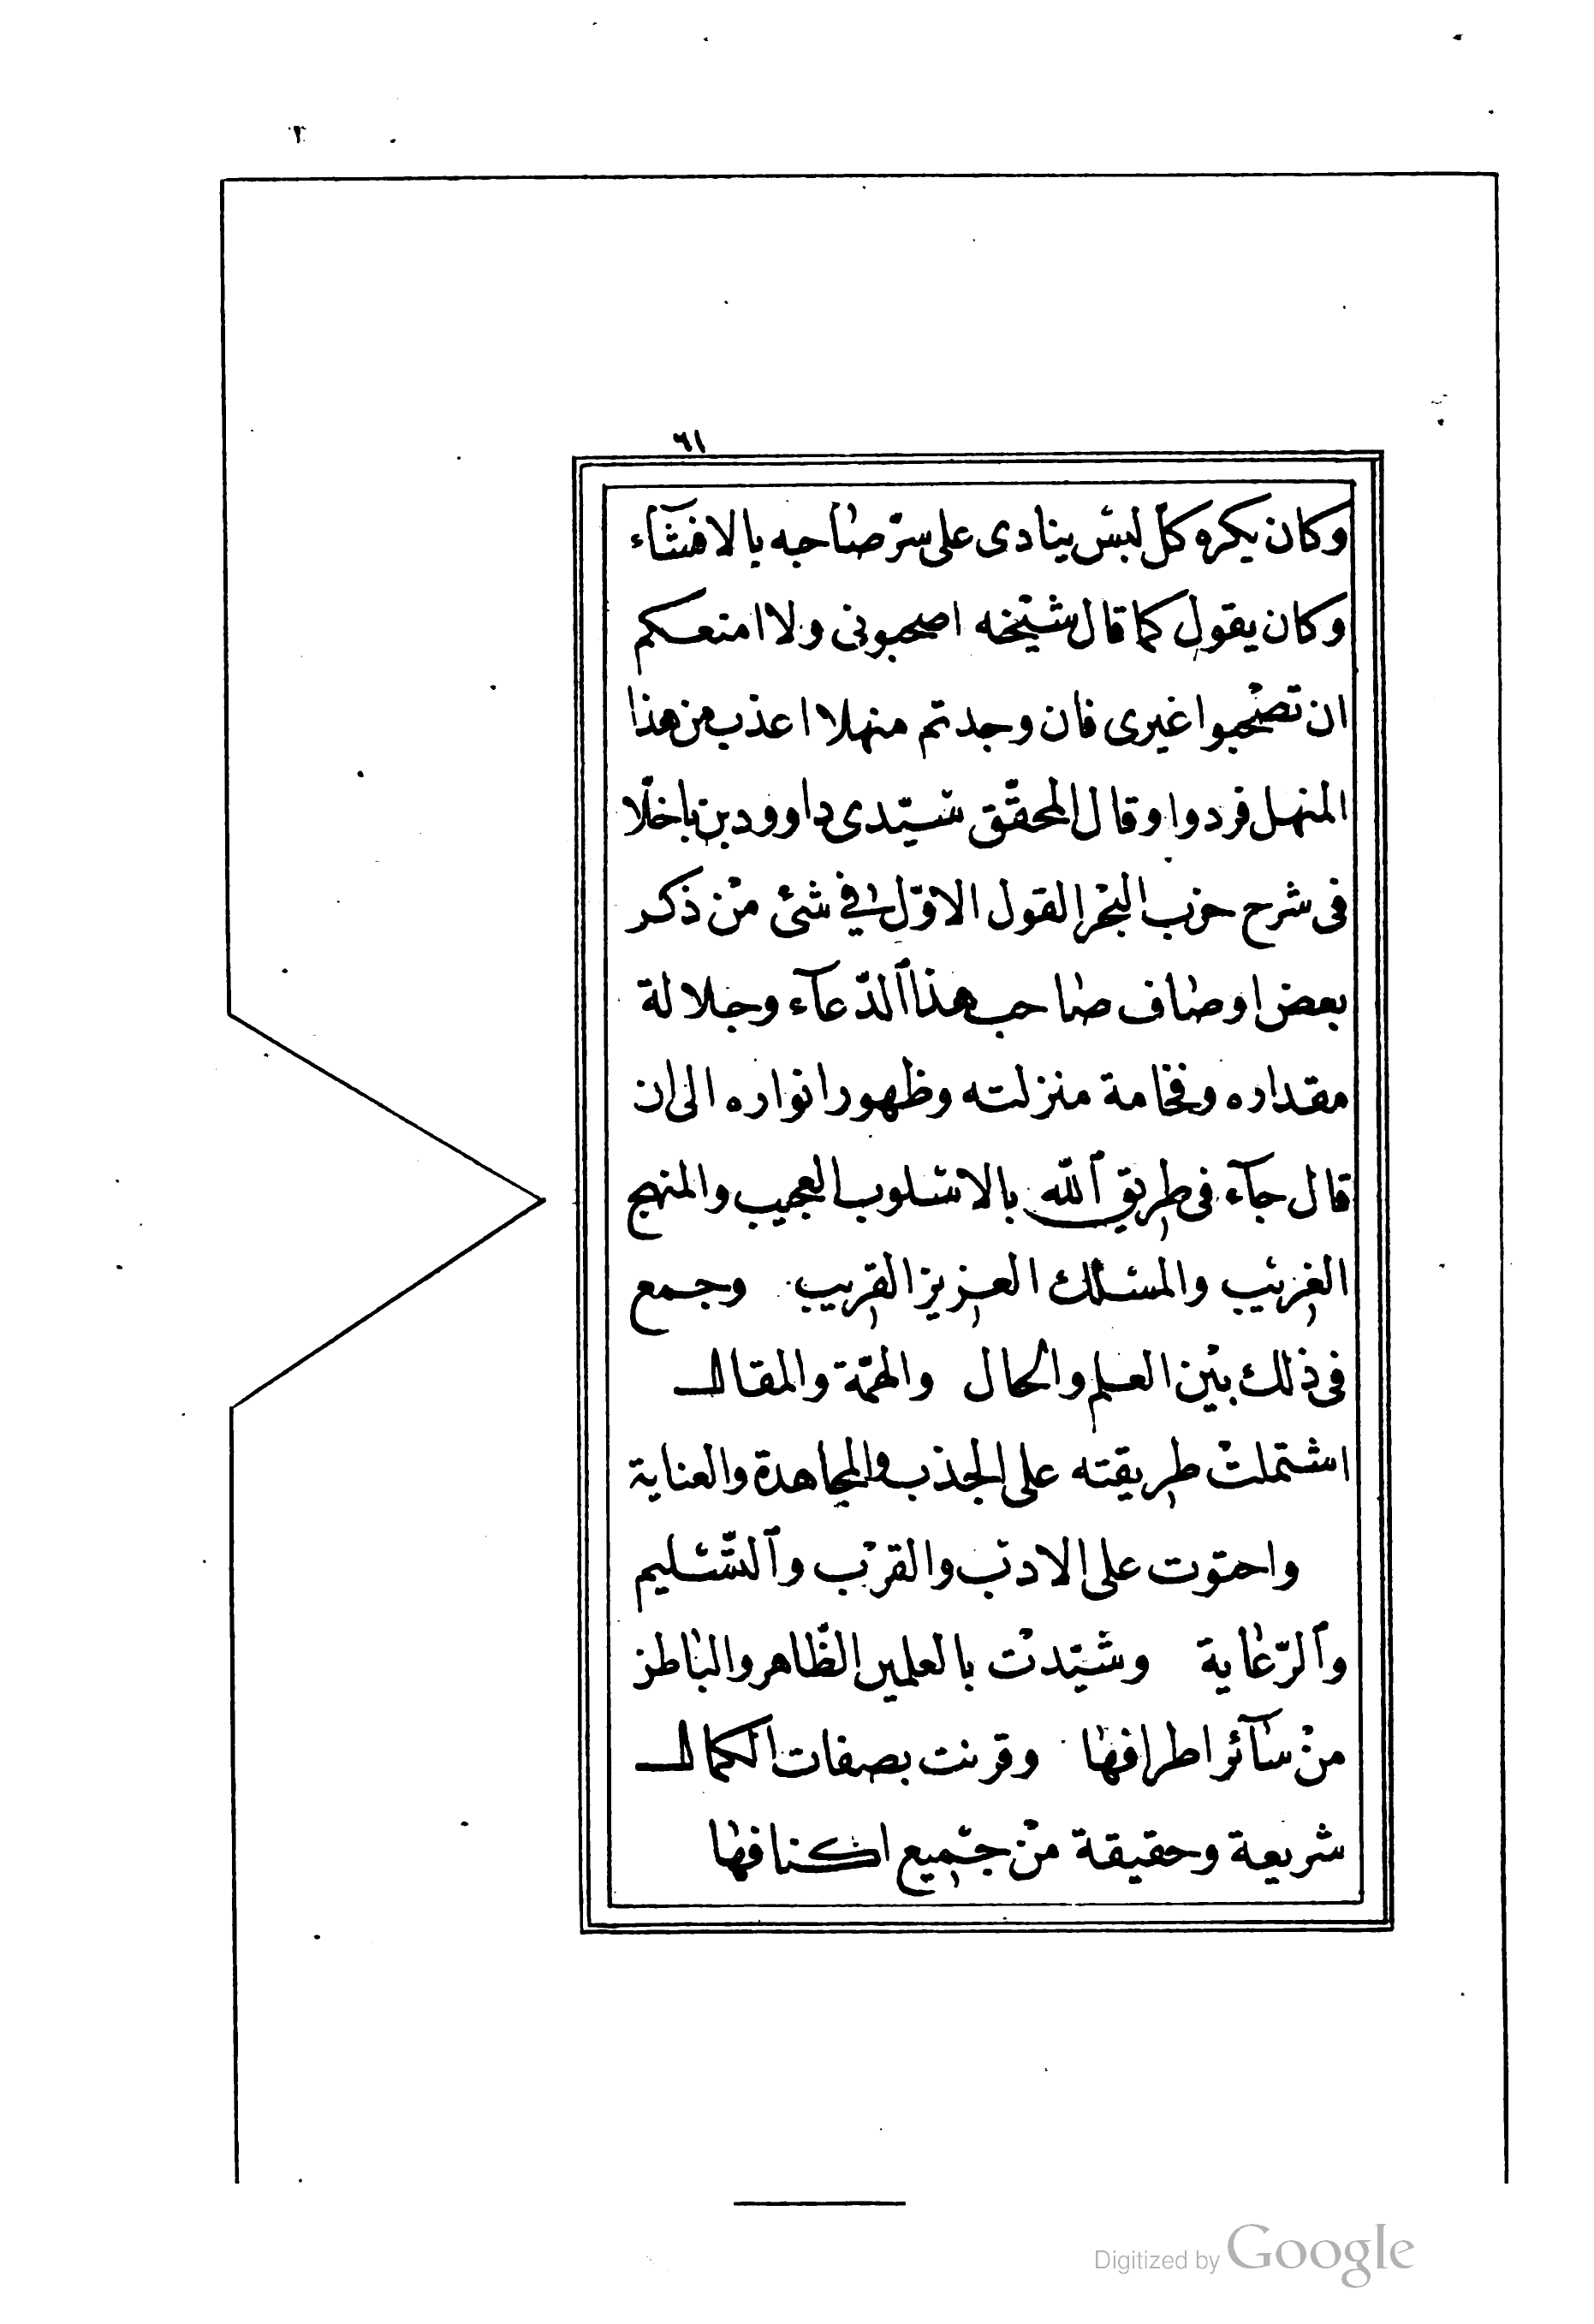 ٦١
وكان يكره كلّ لبس ينادى على سرّ صاحبه بالافشاء
وكان يقول كما قال شيخه اصحبونى ولا امنعكم
ان تصحبوا غيرى فان وجدتم منهلا اعذب من هذا
المنهل فردوا وقال المحقّق سيّدى داوود بن باخلّا
فى شرح حزب البحر القول الاوّل في شئ من ذكر
بعض اوصاف صاحب هذا الدّعآء وجلالة
مقداره وفخامة منزلته وظهور انواره الى ان
قال جآء فى طريق الله بالاسلوب العجيب والمنهج
الغريب والمسلك العزيز القريب وجمع
فى ذلك بين العلم والحال والهمّة والمقال
اشتملت طريقته على الجذب والمجاهدة والعناية
واحتوت على الادب والقرب والتّسليم
والرّعاية وشيّدت بالعلمين الظّاهر والباطن
من سآئر اطرافها وقرنت بصفات الكمال
شريعة وحقيقة من جميع اكنافها
Digitized by Google